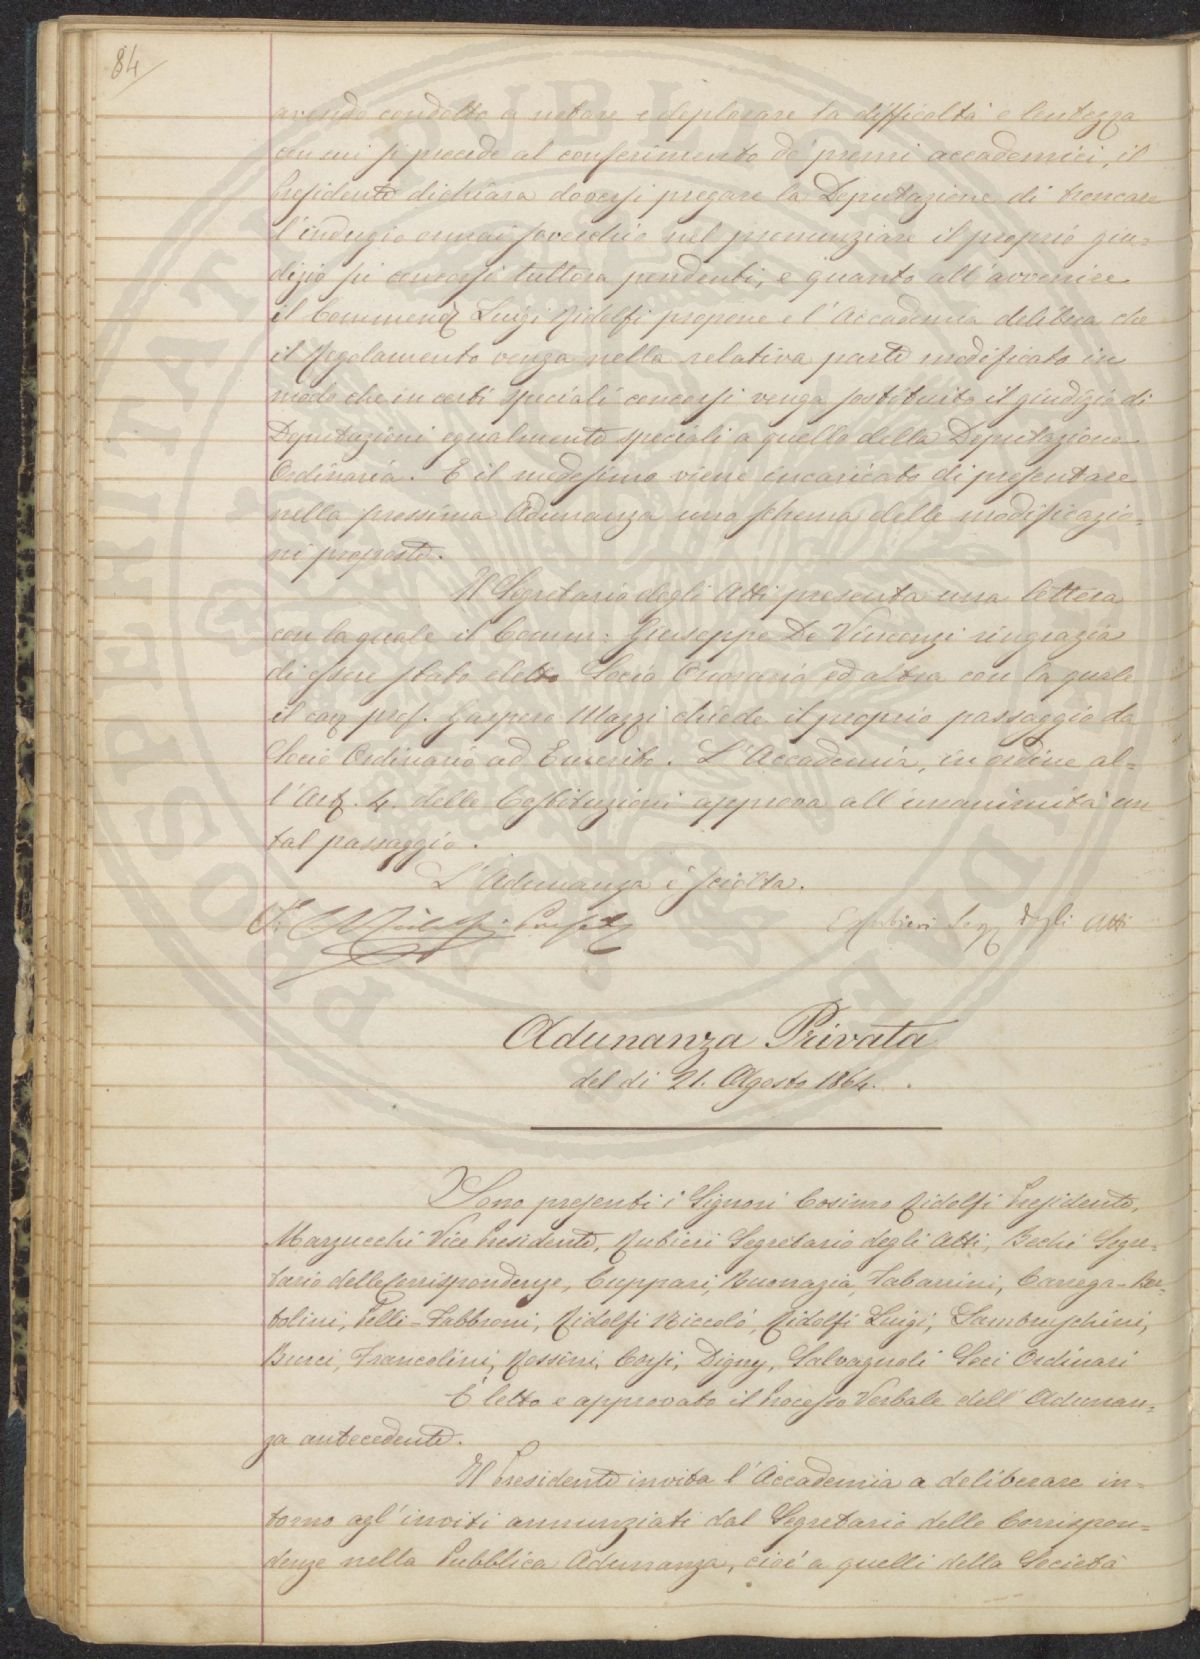 84
avendo condotto a notare e deplorare la difficoltà e lentezza
con cui si procede al conferimento de' premi accademici, il
Presidente dichiara doversi pregare la Deputazione di troncare
l'indugio omai soverchio nel pronunziare il proprio giu=
dizio su concorsi tuttora pendenti, e quanto all'avvenire
il Commend. Luigi Ridolfi propone e l'Accademia delibera che
il Regolamento venga nella relativa parte modificato in
modo che in certi speciali concorsi venga sostituito il giudizio di
Deputazioni egualmente speciali a quello della Deputazione
Ordinaria. E il medesimo viene incaricato di presentare
nella prossima Adunanza uno schema delle modificazio=
ni proposte.
Il Segretario degli Atti presenta una lettera
con la quale il Comm: Giuseppe De Vincenzi ringrazia
di essere stato eletto Socio Onorario ed altra con la quale
il cav. prof. Gaspero Mazzi chiede il proprio passaggio da
Socio Ordinario ad Emerito. L'Accademia, in ordine al=
l'Art. 4. delle Costituzioni approva all'unanimità un
tal passaggio.
L'Adunanza è sciolta.
C. Ridolfi Presidte
E Rubieri Seg. degli Atti
Adunanza Privata
del dì 21. Agosto 1864.
Sono presenti i Signori Cosimo Ridolfi Presidente,
Marzucchi Vice Presidente, Rubieri Segretario degli Atti, Bechi Segre=
tario delle Corrispondenze, Cuppari, Buonazia, Tabarrini, Carega-Ber=
tolini, Pelli-Fabbroni, Ridolfi Niccolò, Ridolfi Luigi, Lambruschini,
Burci, Francolini, Rossini, Corsi, Digny, Salvagnoli Soci Ordinari
È letto e approvato il Processo Verbale dell'Adunan=
za antecedente.
Il Presidente invita l'Accademia a deliberare in=
torno agl'inviti annunziati dal Segretario delle Corrispon=
denze nella Pubblica Adunanza, cioè a quelli della Società
PROSPERITATI PUBLICAE AUGENDAE